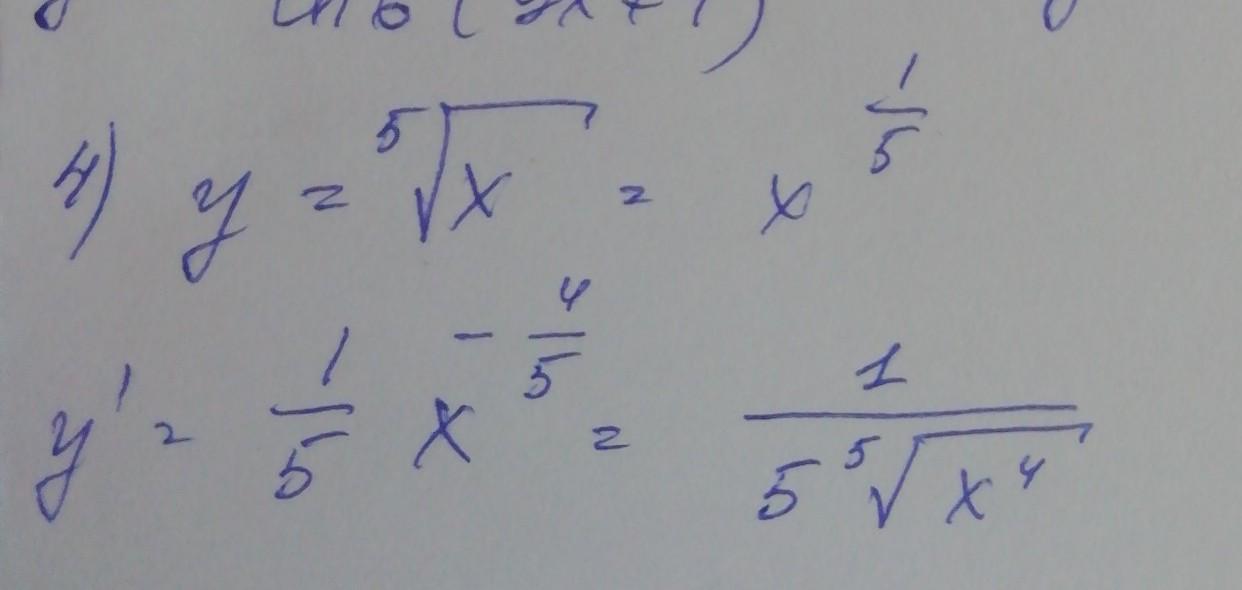 4) y = ⁵√x = x^(1/5)
y' = 1/5 x^(-4/5) = 1/(5 ⁵√(x⁴))